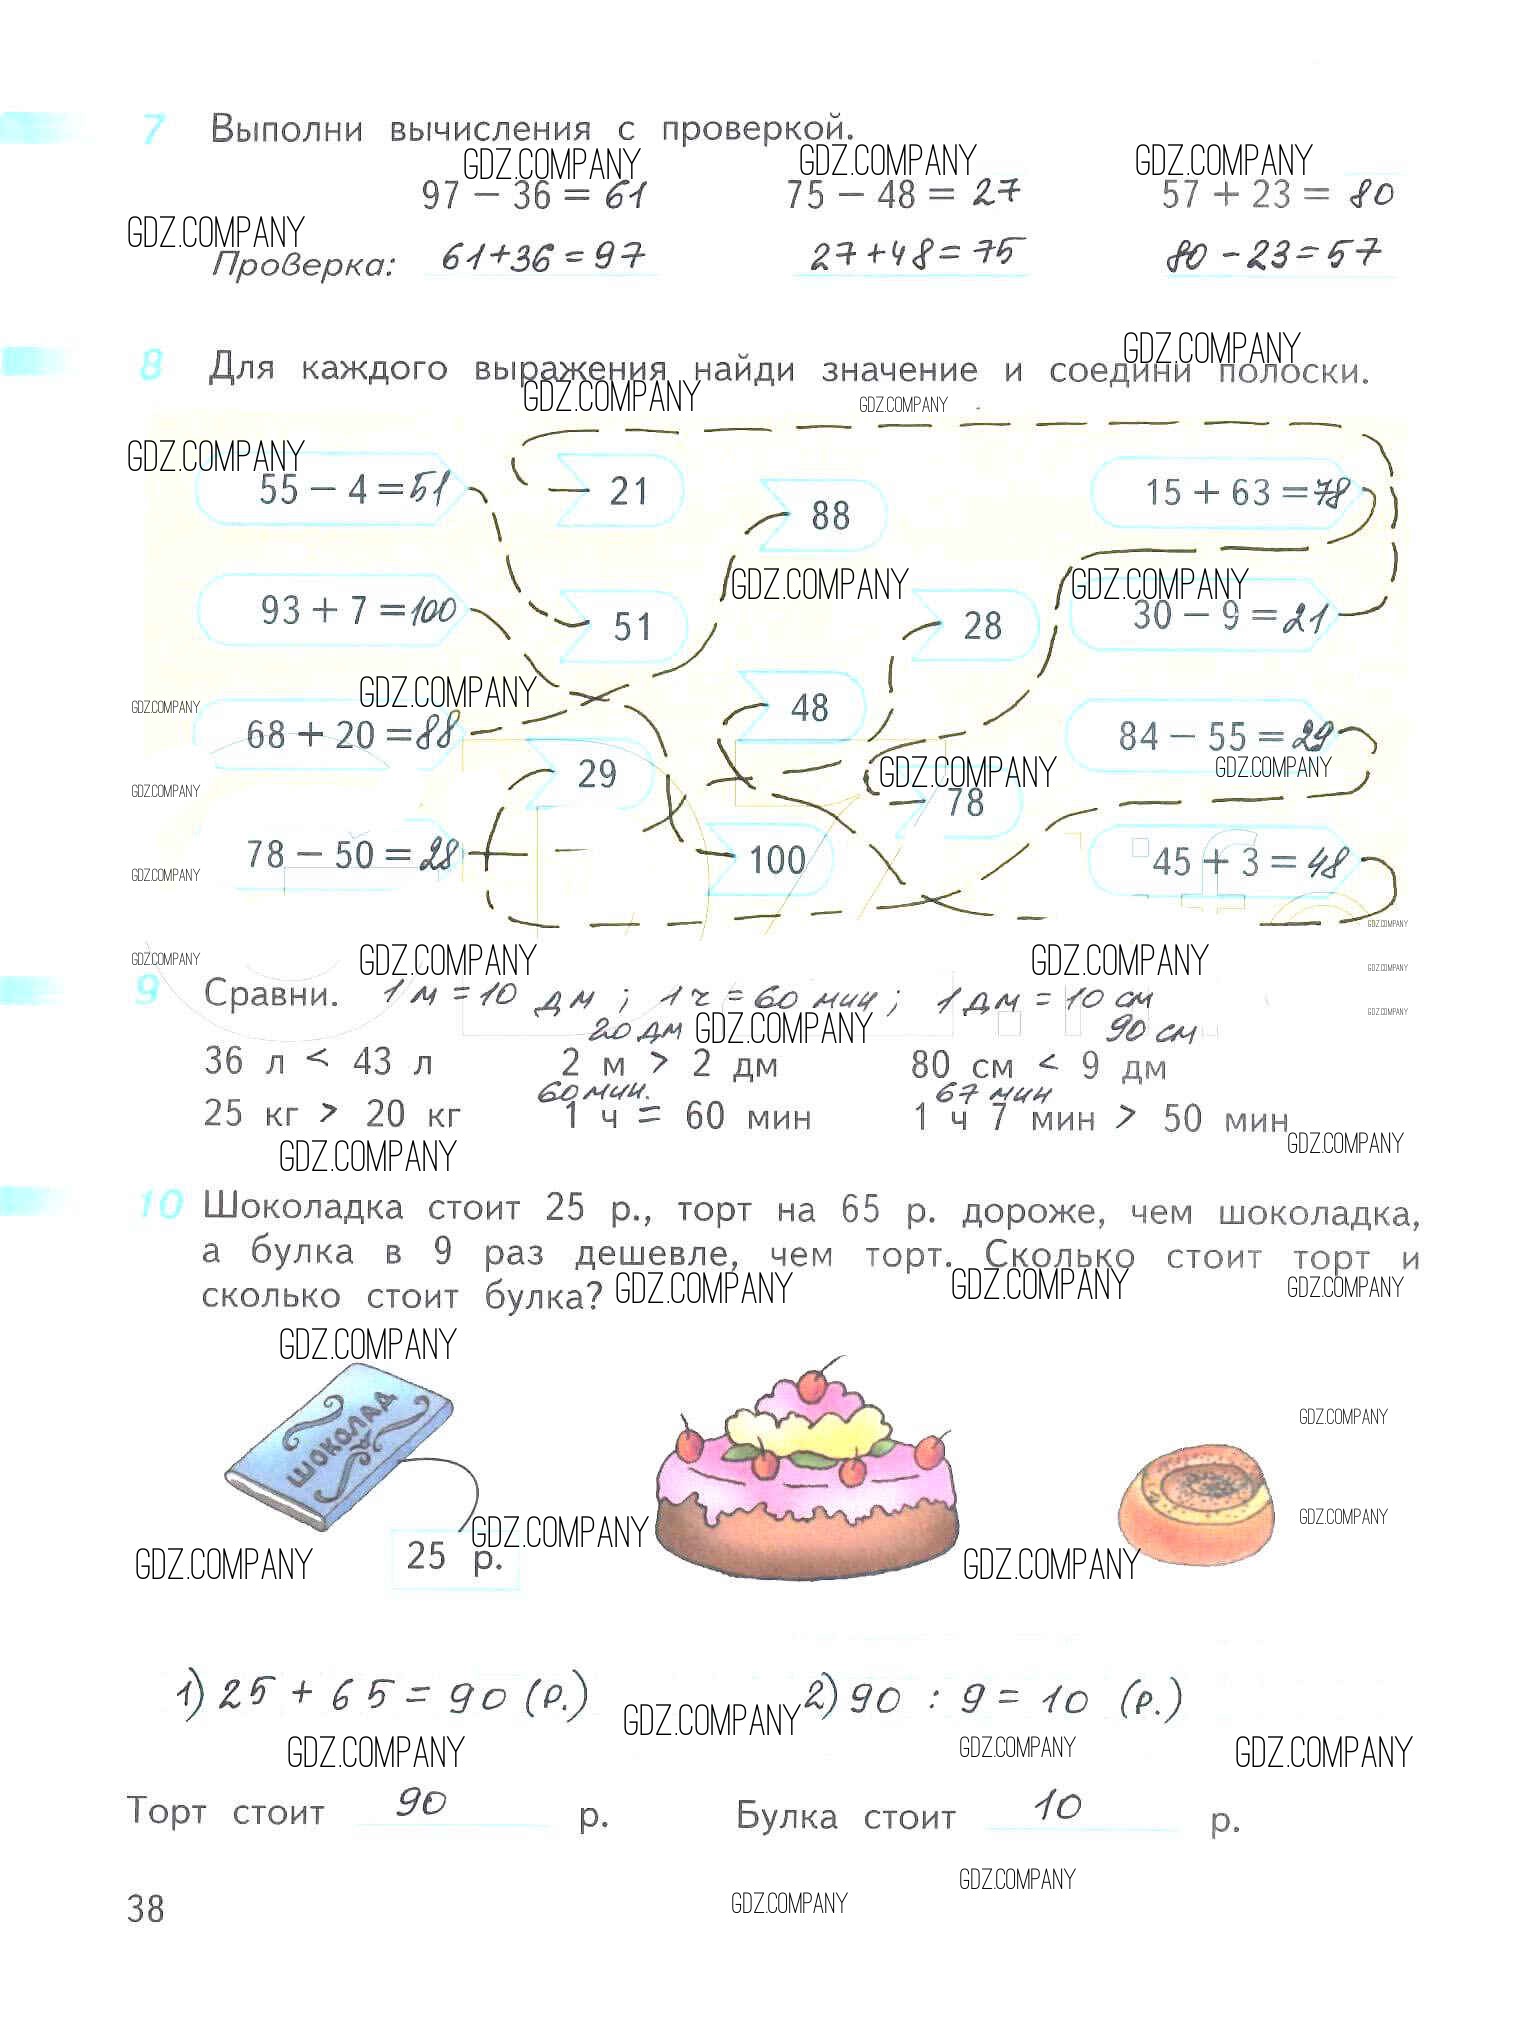 7 Выполни вычисления с проверкой.
GDZ.COMPANY GDZ.COMPANY GDZ.COMPANY
97 − 36 = 61 75 − 48 = 27 57 + 23 = 80
GDZ.COMPANY
Проверка: 61+36=97 27+48=75 80-23=57
GDZ.COMPANY
8 Для каждого выражения найди значение и соедини полоски.
GDZ.COMPANY GDZ.COMPANY
GDZ.COMPANY
55 − 4 = 51 21 15 + 63 = 78
88
GDZ.COMPANY GDZ.COMPANY
93 + 7 = 100 51 28 30 − 9 = 21
GDZ.COMPANY GDZ.COMPANY
48
68 + 20 = 88 84 − 55 = 29
29 GDZ.COMPANY GDZ.COMPANY
GDZ.COMPANY 78
78 − 50 = 28 100 45 + 3 = 48
GDZ.COMPANY
GDZ.COMPANY
GDZ.COMPANY GDZ.COMPANY GDZ.COMPANY GDZ.COMPANY
9 Сравни. 1 м = 10 дм ; 1 ч = 60 мин ; 1 дм = 10 см
GDZ.COMPANY
20 дм GDZ.COMPANY 90 см
36 л < 43 л 2 м > 2 дм 80 см < 9 дм
60 мин. 67 мин
25 кг > 20 кг 1 ч = 60 мин 1 ч 7 мин > 50 мин
GDZ.COMPANY GDZ.COMPANY
10 Шоколадка стоит 25 р., торт на 65 р. дороже, чем шоколадка,
а булка в 9 раз дешевле, чем торт. Сколько стоит торт и
сколько стоит булка? GDZ.COMPANY GDZ.COMPANY GDZ.COMPANY
GDZ.COMPANY
ШОКОЛАД
GDZ.COMPANY
GDZ.COMPANY GDZ.COMPANY
GDZ.COMPANY 25 р. GDZ.COMPANY
1) 25 + 65 = 90 (р.) 2) 90 : 9 = 10 (р.)
GDZ.COMPANY
GDZ.COMPANY GDZ.COMPANY GDZ.COMPANY
Торт стоит 90 р. Булка стоит 10 р.
GDZ.COMPANY
38 GDZ.COMPANY